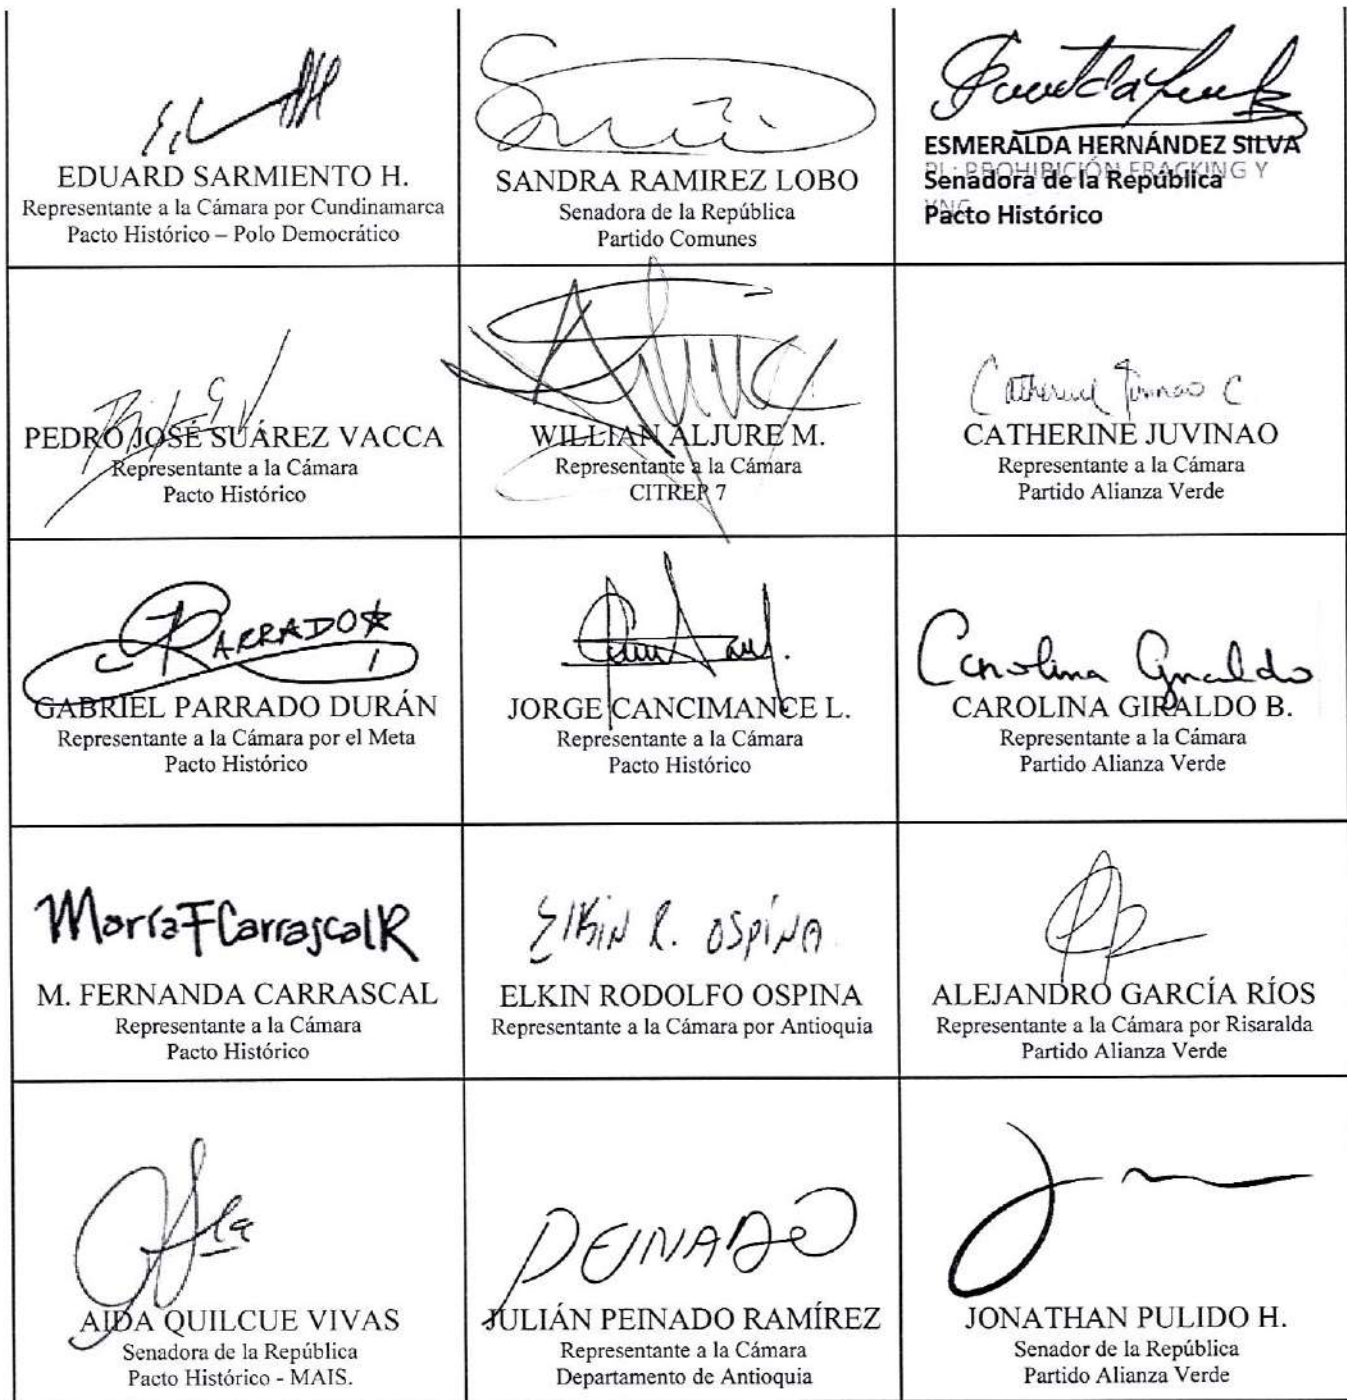 EDUARD SARMIENTO H.
Representante a la Cámara por Cundinamarca
Pacto Histórico – Polo Democrático
SANDRA RAMIREZ LOBO
Senadora de la República
Partido Comunes
ESMERALDA HERNÁNDEZ SILVA
PL: PROHIBICIÓN FRACKING Y
Senadora de la República
YNC
Pacto Histórico
PEDRO JOSÉ SUÁREZ VACCA
Representante a la Cámara
Pacto Histórico
WILLIAN ALJURE M.
Representante a la Cámara
CITREP 7
Catherine Juvinao C
CATHERINE JUVINAO
Representante a la Cámara
Partido Alianza Verde
PARRADO
GABRIEL PARRADO DURÁN
Representante a la Cámara por el Meta
Pacto Histórico
JORGE CANCIMANCE L.
Representante a la Cámara
Pacto Histórico
Carolina Giraldo
CAROLINA GIRALDO B.
Representante a la Cámara
Partido Alianza Verde
María F Carrascal R
M. FERNANDA CARRASCAL
Representante a la Cámara
Pacto Histórico
Elkin R. OSPINA
ELKIN RODOLFO OSPINA
Representante a la Cámara por Antioquia
ALEJANDRO GARCÍA RÍOS
Representante a la Cámara por Risaralda
Partido Alianza Verde
AIDA QUILCUE VIVAS
Senadora de la República
Pacto Histórico - MAIS.
PEINADO
JULIÁN PEINADO RAMÍREZ
Representante a la Cámara
Departamento de Antioquia
JONATHAN PULIDO H.
Senador de la República
Partido Alianza Verde